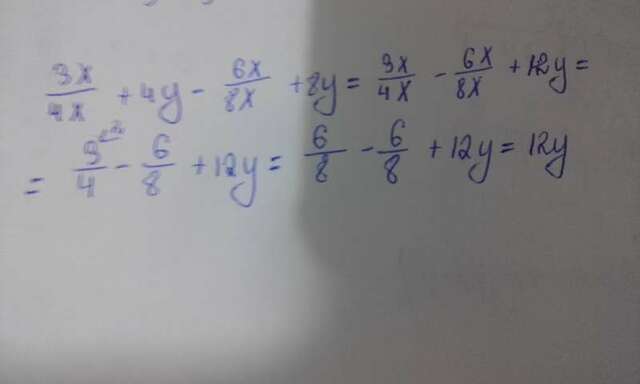 3x/4x + 4y - 6x/8x + 8y = 3x/4x - 6x/8x + 12y =
= 3^(2/4 - 6/8 + 12y = 6/8 - 6/8 + 12y = 12y